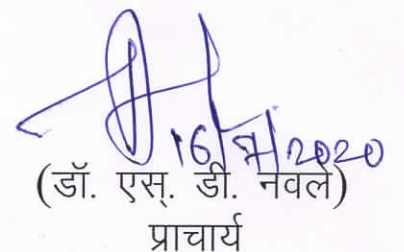 16/7/2020
(डॉ. एस्. डी. नवले)
प्राचार्य